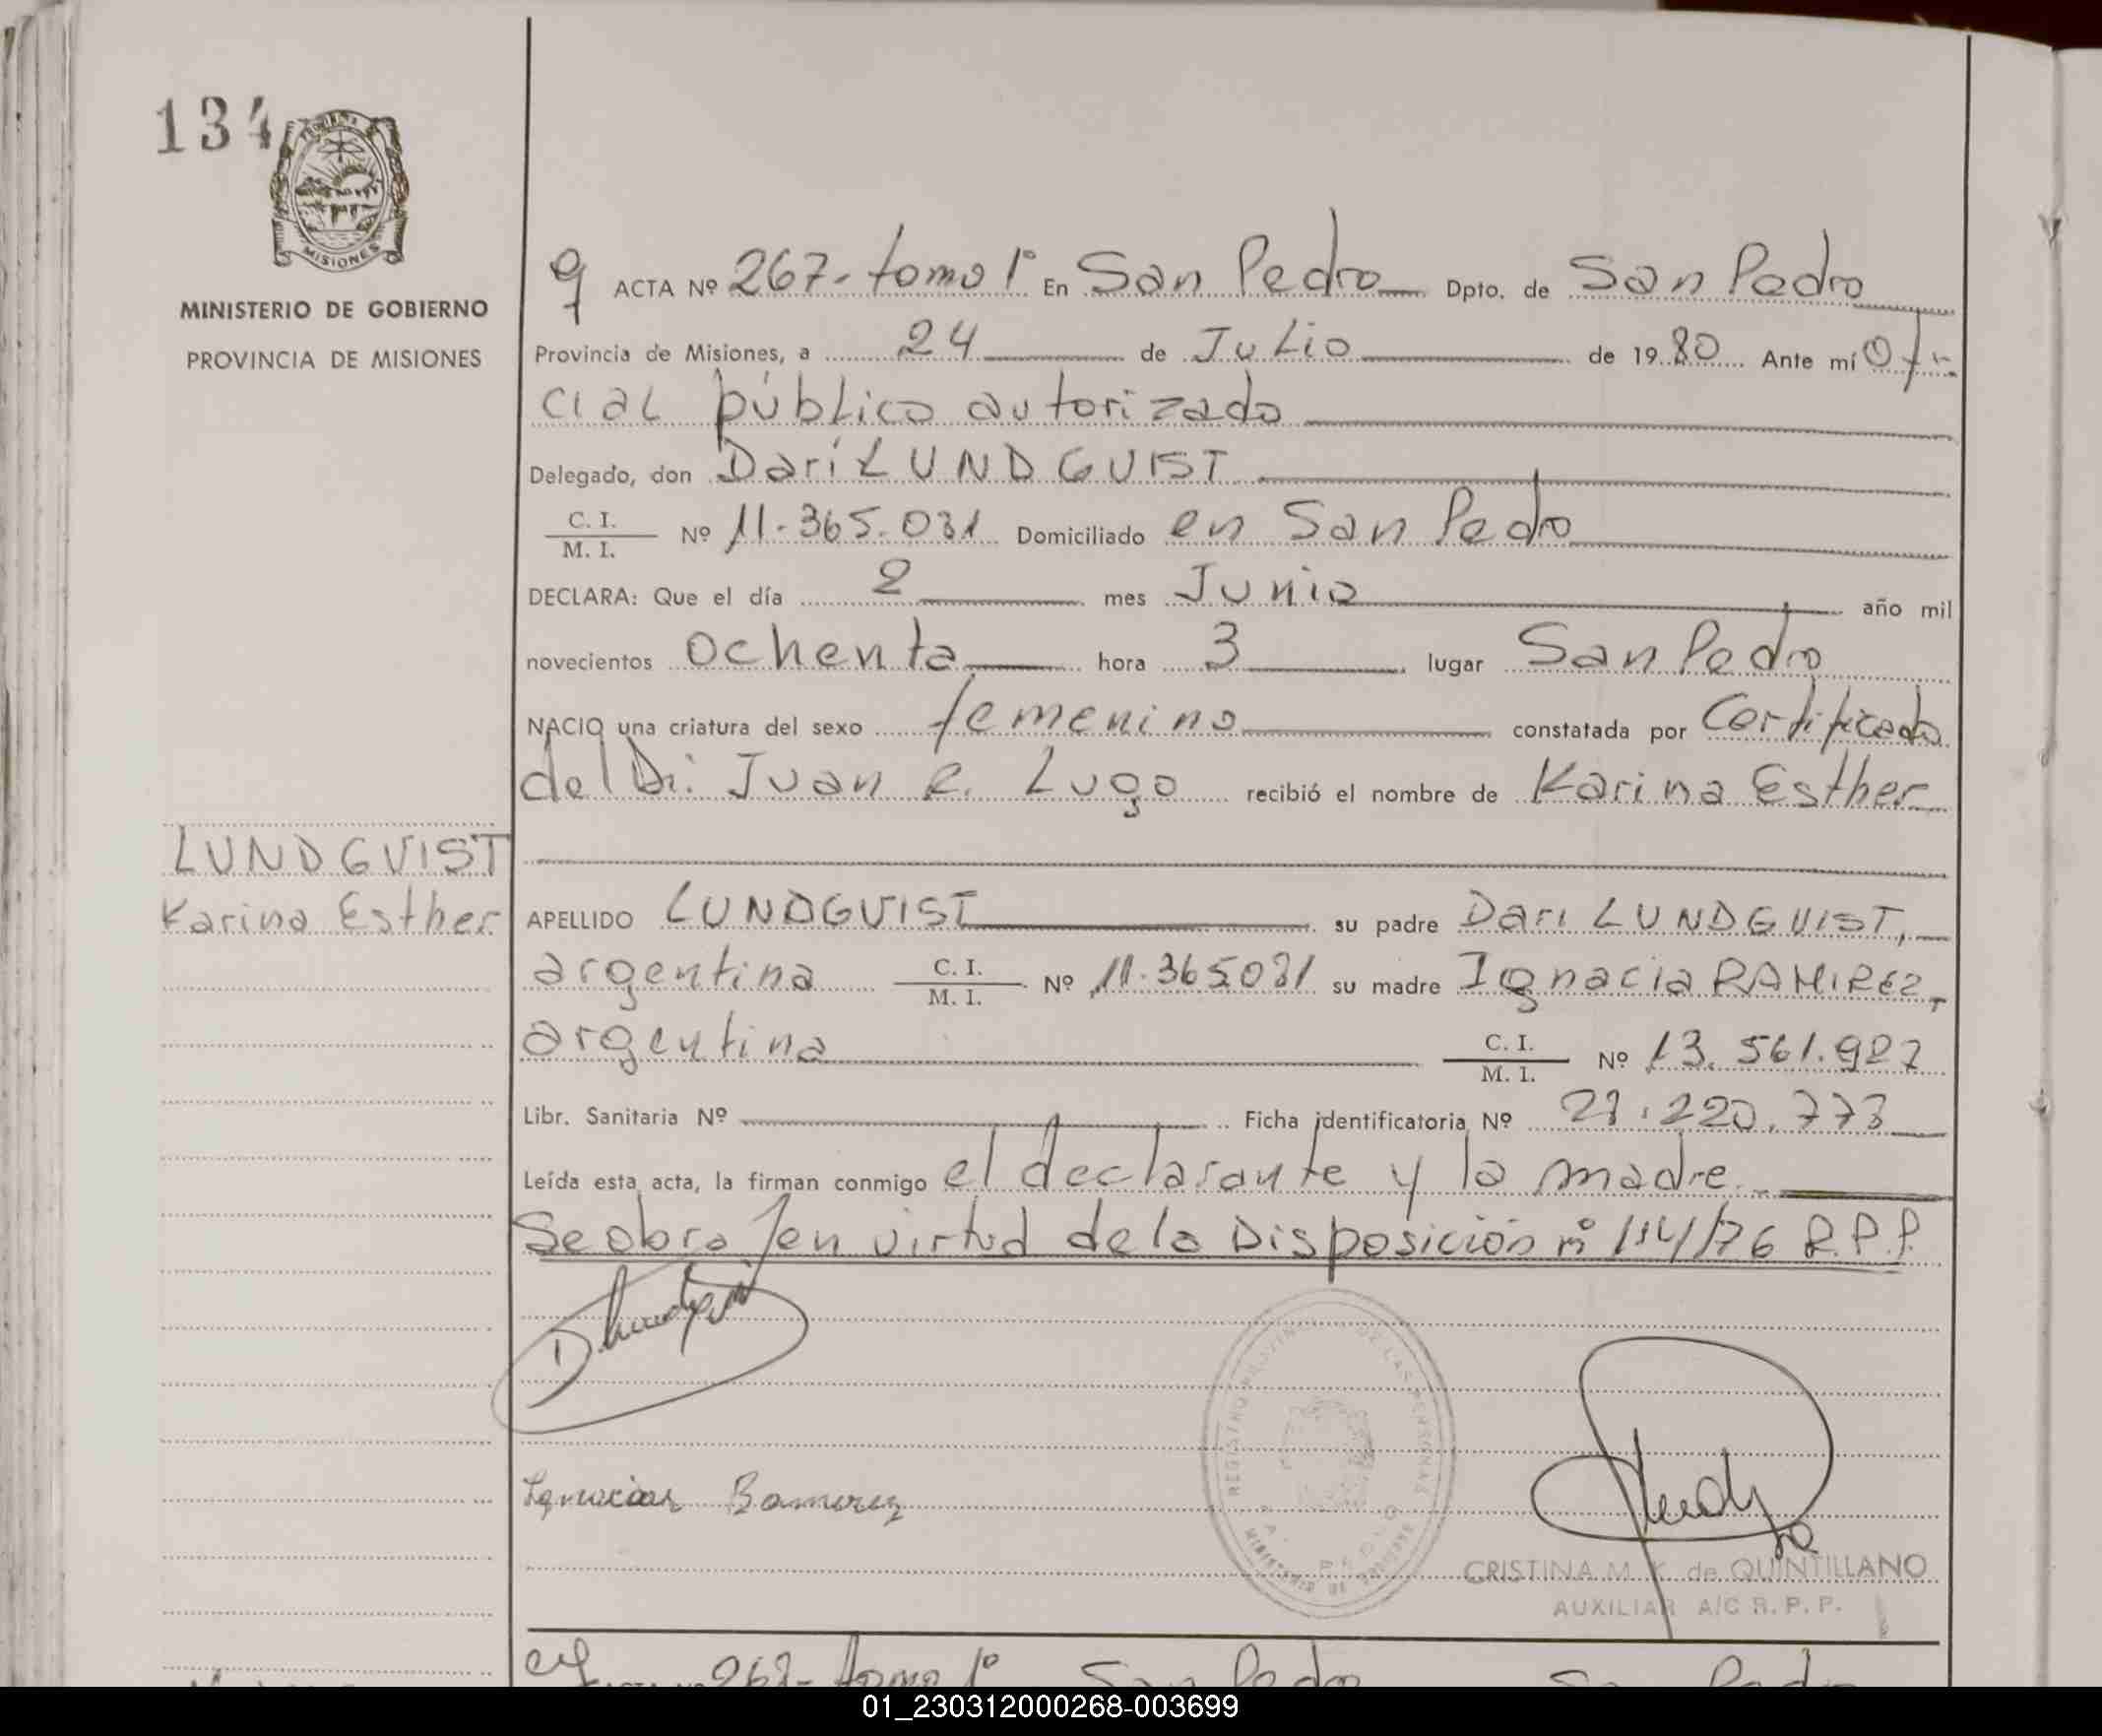 134
MISIONES
MINISTERIO DE GOBIERNO
PROVINCIA DE MISIONES
ACTA Nº 267- tomo 1º En San Pedro Dpto. de San Pedro
Provincia de Misiones, a 24 de Julio de 1980 Ante mí Ofi-
cial público autorizado
Delegado, don Darí LUNDGUIST
C. I. / M. I. Nº 11.365.031 Domiciliado en San Pedro
DECLARA: Que el día 2 mes Junio año mil
novecientos ochenta hora 3 lugar San Pedro
NACIO una criatura del sexo femenino constatada por Certificado
del Dr. Juan R. Lugo recibió el nombre de Karina Esther
LUNDGUIST
Karina Esther
APELLIDO LUNDGUIST su padre Dari LUNDGUIST,
argentina C. I. / M. I. Nº 11.365.031 su madre Ignacia RAMIREZ,
argentina C. I. / M. I. Nº 13.561.927
Libr. Sanitaria Nº Ficha identificatoria Nº 28.220.773
Leída esta acta, la firman conmigo el declarante y la madre.
Se obra en virtud de la Disposición nº 114/76 R.P.P.
Ignacia Ramirez
REGISTRO PROVINCIAL DE LAS PERSONAS
MINISTERIO DE GOBIERNO
CRISTINA M. K. de QUINTILLANO
AUXILIAR A/C R. P. P.
tomo 1º San Pedro San Pedro
01_230312000268-003699